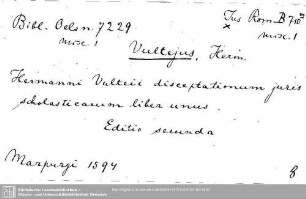 Bibl. Oels n. 7229
misc. 1
Jus Rom. B 710
misc. 1
Vultejus, Herm.
Hermanni Vulteii disceptationum juris
scholasticarum liber unus.
Editio secunda
Marpurgi 1594
8